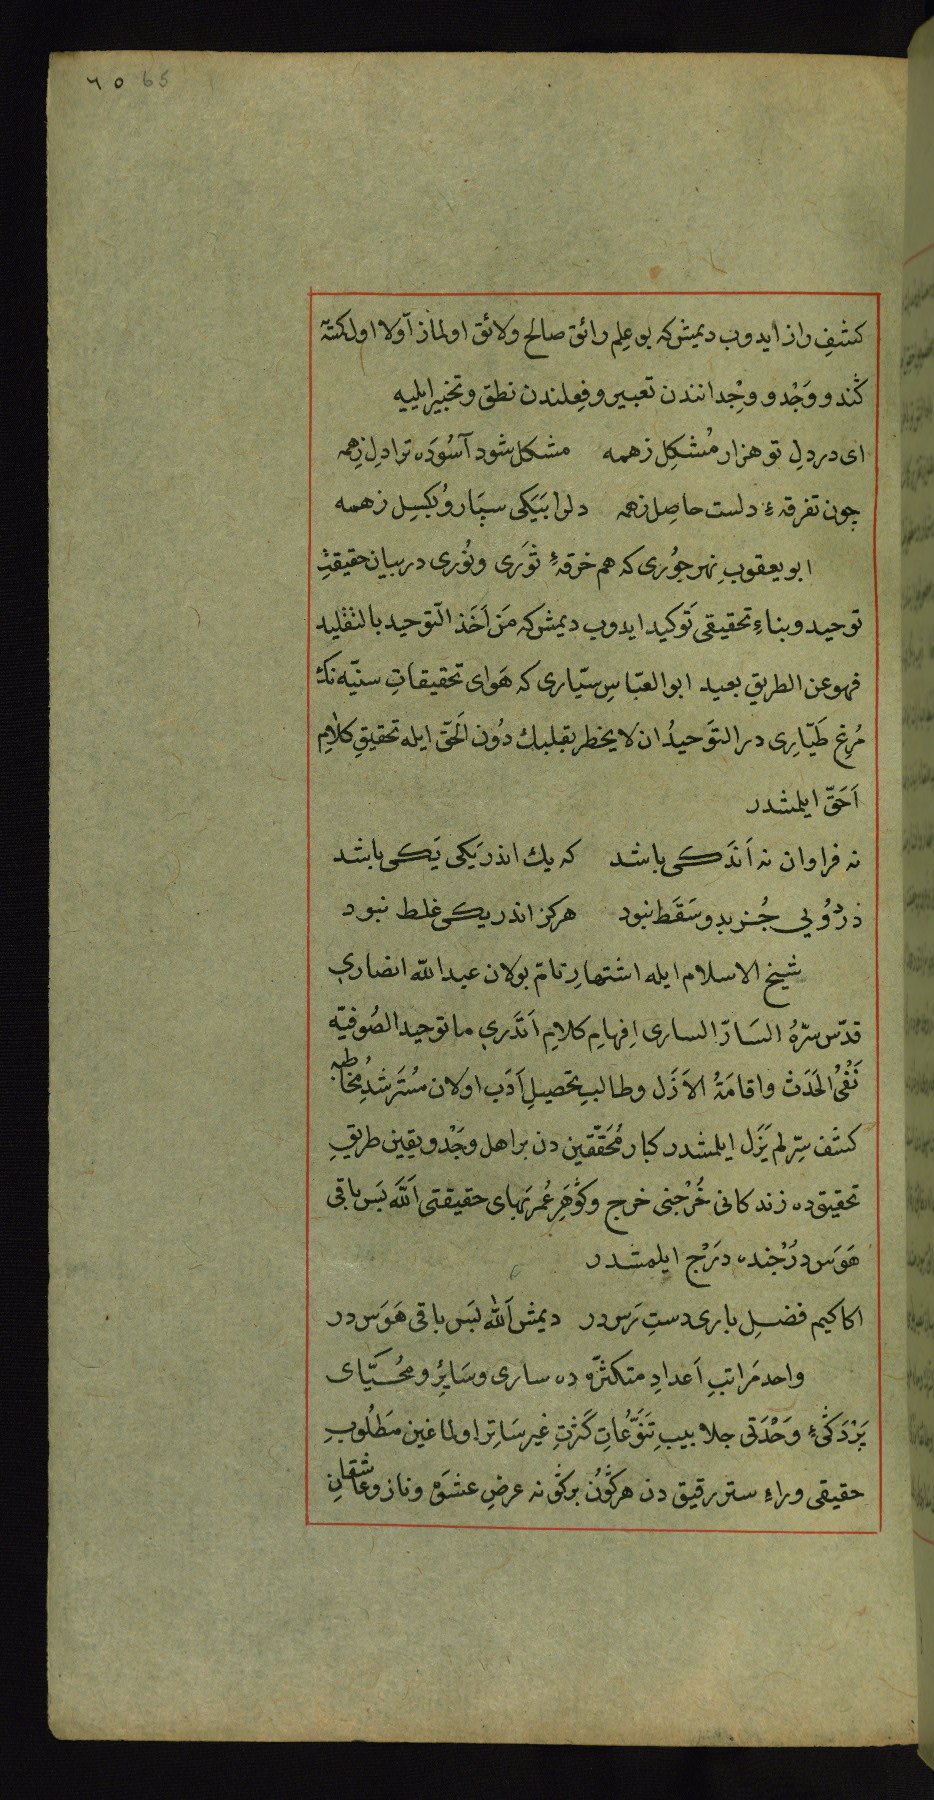 ٦٥ 65
كشفِ راز ايدوب ديمش كه بو علم رائق صالح ولائق اولماز اولا اول كمسه
كندو وَجْد و وِجْدانندن تعبير و فعلندن نطق و تخبير ايليه
اى در دلِ تو هزار مُشكِل زهمه مشكل شود آسُوده ترا دل زهمه
چون تفرقهٔ دلست حاصِل زهمه دلرا بيَكى سپار و بُكسِل زهمه
ابو يعقوبِ نهرجُورى كه هم خرقهٔ ثَورى و نُورى در بيان حقيقتِ
توحيد و بناءِ تحقيقى توكيد ايدوب ديمش كه مَن اَخَذ التّوحيد بالتقليد
فهو عن الطريق بعيد ابو العبّاسِ سيّارى كه هَواى تحقيقاتِ سنيّه نك
مُرغِ طَيّارِى در التوَحيدُ ان لا يخطر بقلبك دُون الحَقّ ايله تحقيقِ كلامِ
اَحَقّ ايلمشدر
نه فراوان نه اَندَكى باشد كه يك اندر يَكى يَكى باشد
در دُويى جُز بد و سَقَط نبود هركز اندر يكى غلط نبود
شيخ الاسلام ايله اشتهارِ تامّ بولان عبد الله انصارى
قدّس سرّهُ السَارّ السارى اِفهامِ كلامِ اَندَرى ما توحيد الصُوفيّه
نَفْىُ الحَدَث واقامَةُ الاَزَل و طالبِ تحصيلِ اَدَب اولان مُسْتَرشدِ مخاطبه
كشف سِرّ لم يَزَل ايلمشدر كبار مُحَقّقين دن بر اهل وَجْد و يقين طريقِ
تحقيقده زندكانى خُرْجنى خرج و كَوهَرِ عُمر بَهاى حقيقتى اَللّه بَس باقى
هَوَس دُرْجنده دَرْج ايلمشدر
اكا كيم فضلِ بارى دستِ رَس در ديمش اَللّه بَس باقى هَوَس در
واحد مَراتبِ اَعدادِ متكثّره ده سارى و سَايرِ و مُحيّاى
پَرْدَكئ وَحْدَتى جلابيبِ تَنَوّعُاتِ كَثرتِ غير سَاتر اولماغين مَطلُوبِ
حقيقى وراءِ ستر رقيق دن هركُون بر كُونه عرضِ عشق و ناز و عاشقانِ